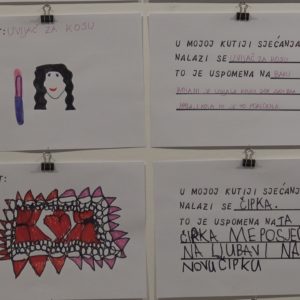 T: UVIJAČ ZA KOSU
U MOJOJ KUTIJI SJEĆANJA
NALAZI SE UVIJAČ ZA KOSU
TO JE USPOMENA NA BAKU
T:
U MOJOJ KUTIJI SJEĆANJ
NALAZI SE ČIPKA.
TO JE USPOMENA NA JA
ME POSJEĆ
NA LJUBAV I NA
NOVU ČIPKU